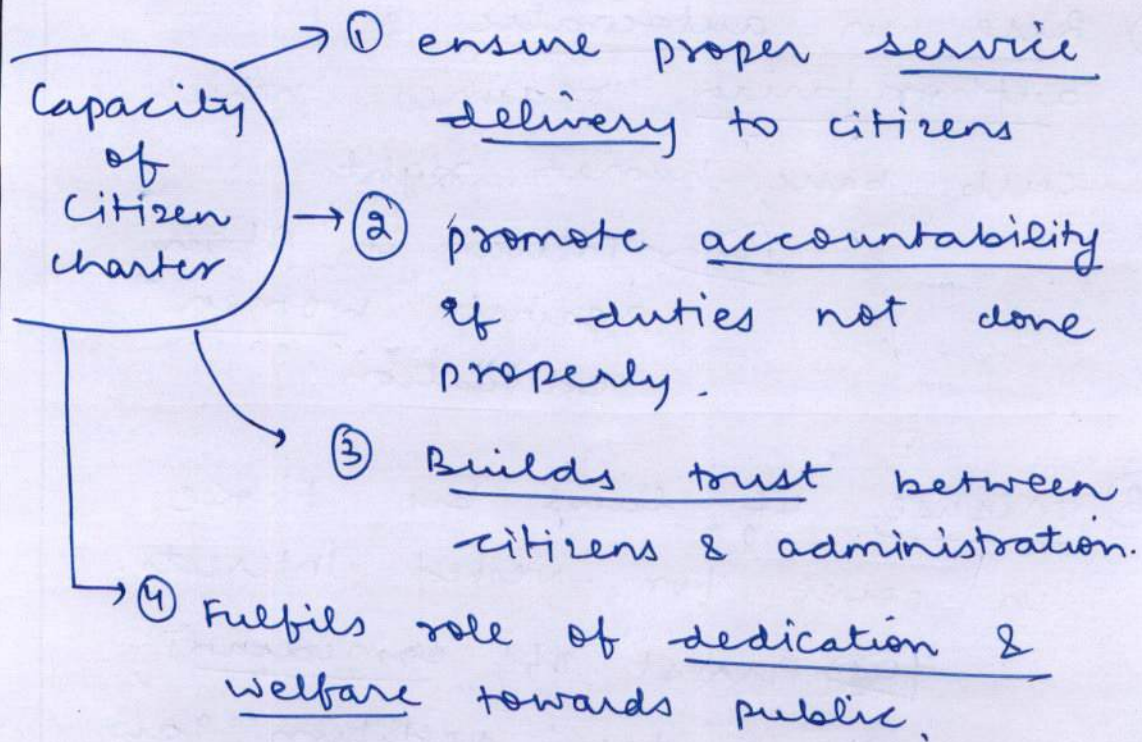 Capacity
of
Citizen
charter
① ensure proper service
delivery to citizens
② promote accountability
if duties not done
properly.
③ Builds trust between
citizens & administration.
④ Fulfils role of dedication &
welfare towards public.